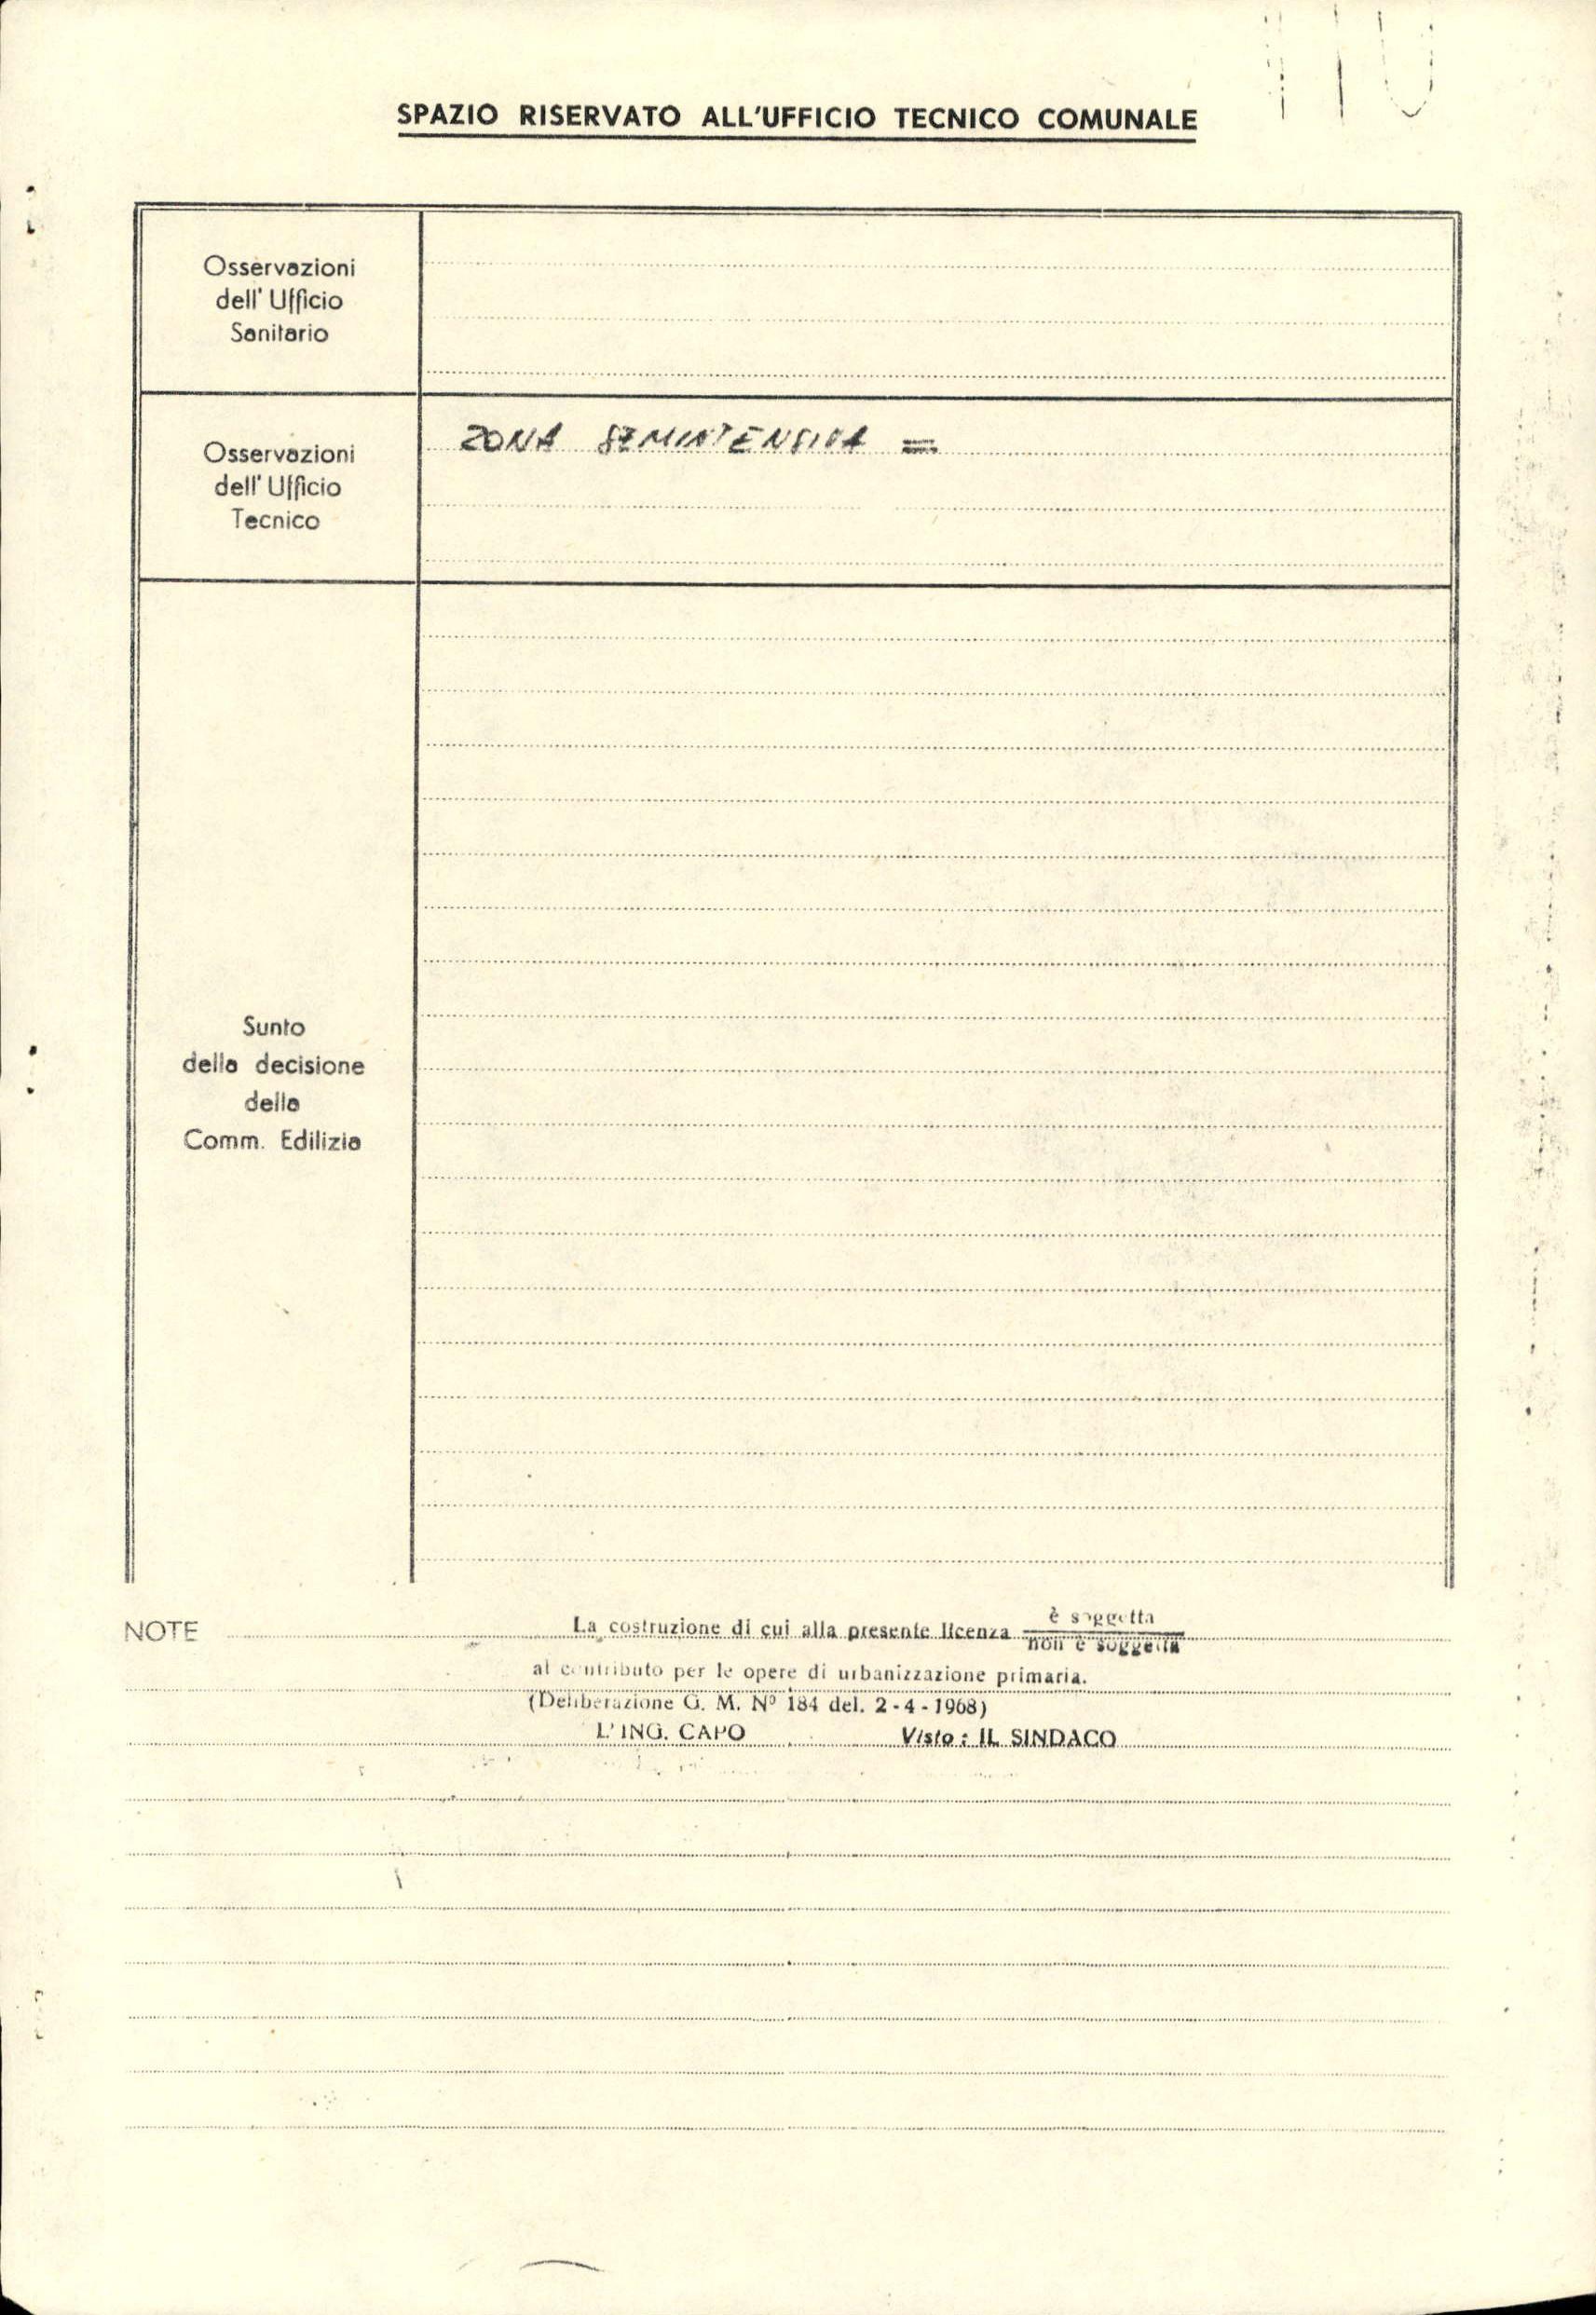 SPAZIO RISERVATO ALL'UFFICIO TECNICO COMUNALE
Osservazioni
dell' Ufficio
Sanitario
Osservazioni
dell' Ufficio
Tecnico
ZONA SEMINTENSIVA =
Sunto
della decisione
della
Comm. Edilizia
NOTE
La costruzione di cui alla presente licenza è soggetta
non è soggetta
al contributo per le opere di urbanizzazione primaria.
(Deliberazione G. M. Nº 184 del. 2-4-1968)
L'ING. CAPO Visto: IL SINDACO